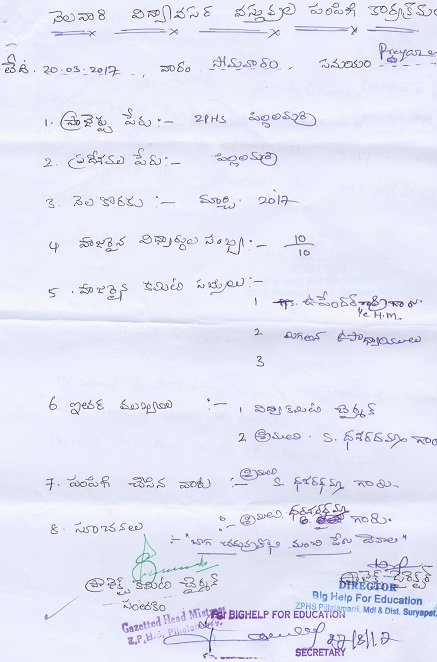 నెలవారి విద్యావసర వస్తువుల పంపిణి కార్యక్రమం
తేది. 20-03-2017, వారం సోమవారం, సమయం Prayer
1. ప్రాజెక్టు పేరు:- ZPHS పిల్లలమర్రి
2. ప్రదేశము పేరు:- పిల్లలమర్రి
3. నెల కొరకు :- మార్చి. 2017
4 హాజరైన విద్యార్థుల సంఖ్య:- 10/10
5. హాజరైన కమిటి సభ్యులు:-
1 ఉపేందర్ గారు
I/c H.M.
2 మిగతా ఉపాధ్యాయులు
3
6 ఇతర ముఖ్యులు :- 1 విద్యాకమిటి చైర్మన్
2. శ్రీమతి. K. గారు
7. పంపిణి చేసిన వారు :- శ్రీమతి K. గారు.
8. సూచనలు :- శ్రీమతి గారు.
:- "బాగా చదువుకొని మంచి పేరు తేవాలి"
ప్రాజెక్ట్ కమిటి చైర్మన్
సంతకం
ప్రాజెక్ట్ డైరెక్టర్
DIRECTOR
Big Help For Education
ZPHS Pillalamarri, Mdl & Dist. Suryapet.
Gazetted Head Mistress
Z.P.H.S. Pillalamarri
For BIGHELP FOR EDUCATION
SECRETARY